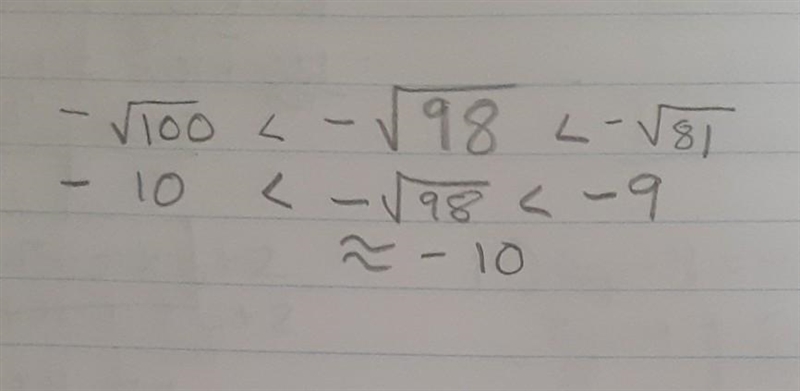 - √100 < -√98 < -√81
- 10 < -√98 < -9
≈ - 10